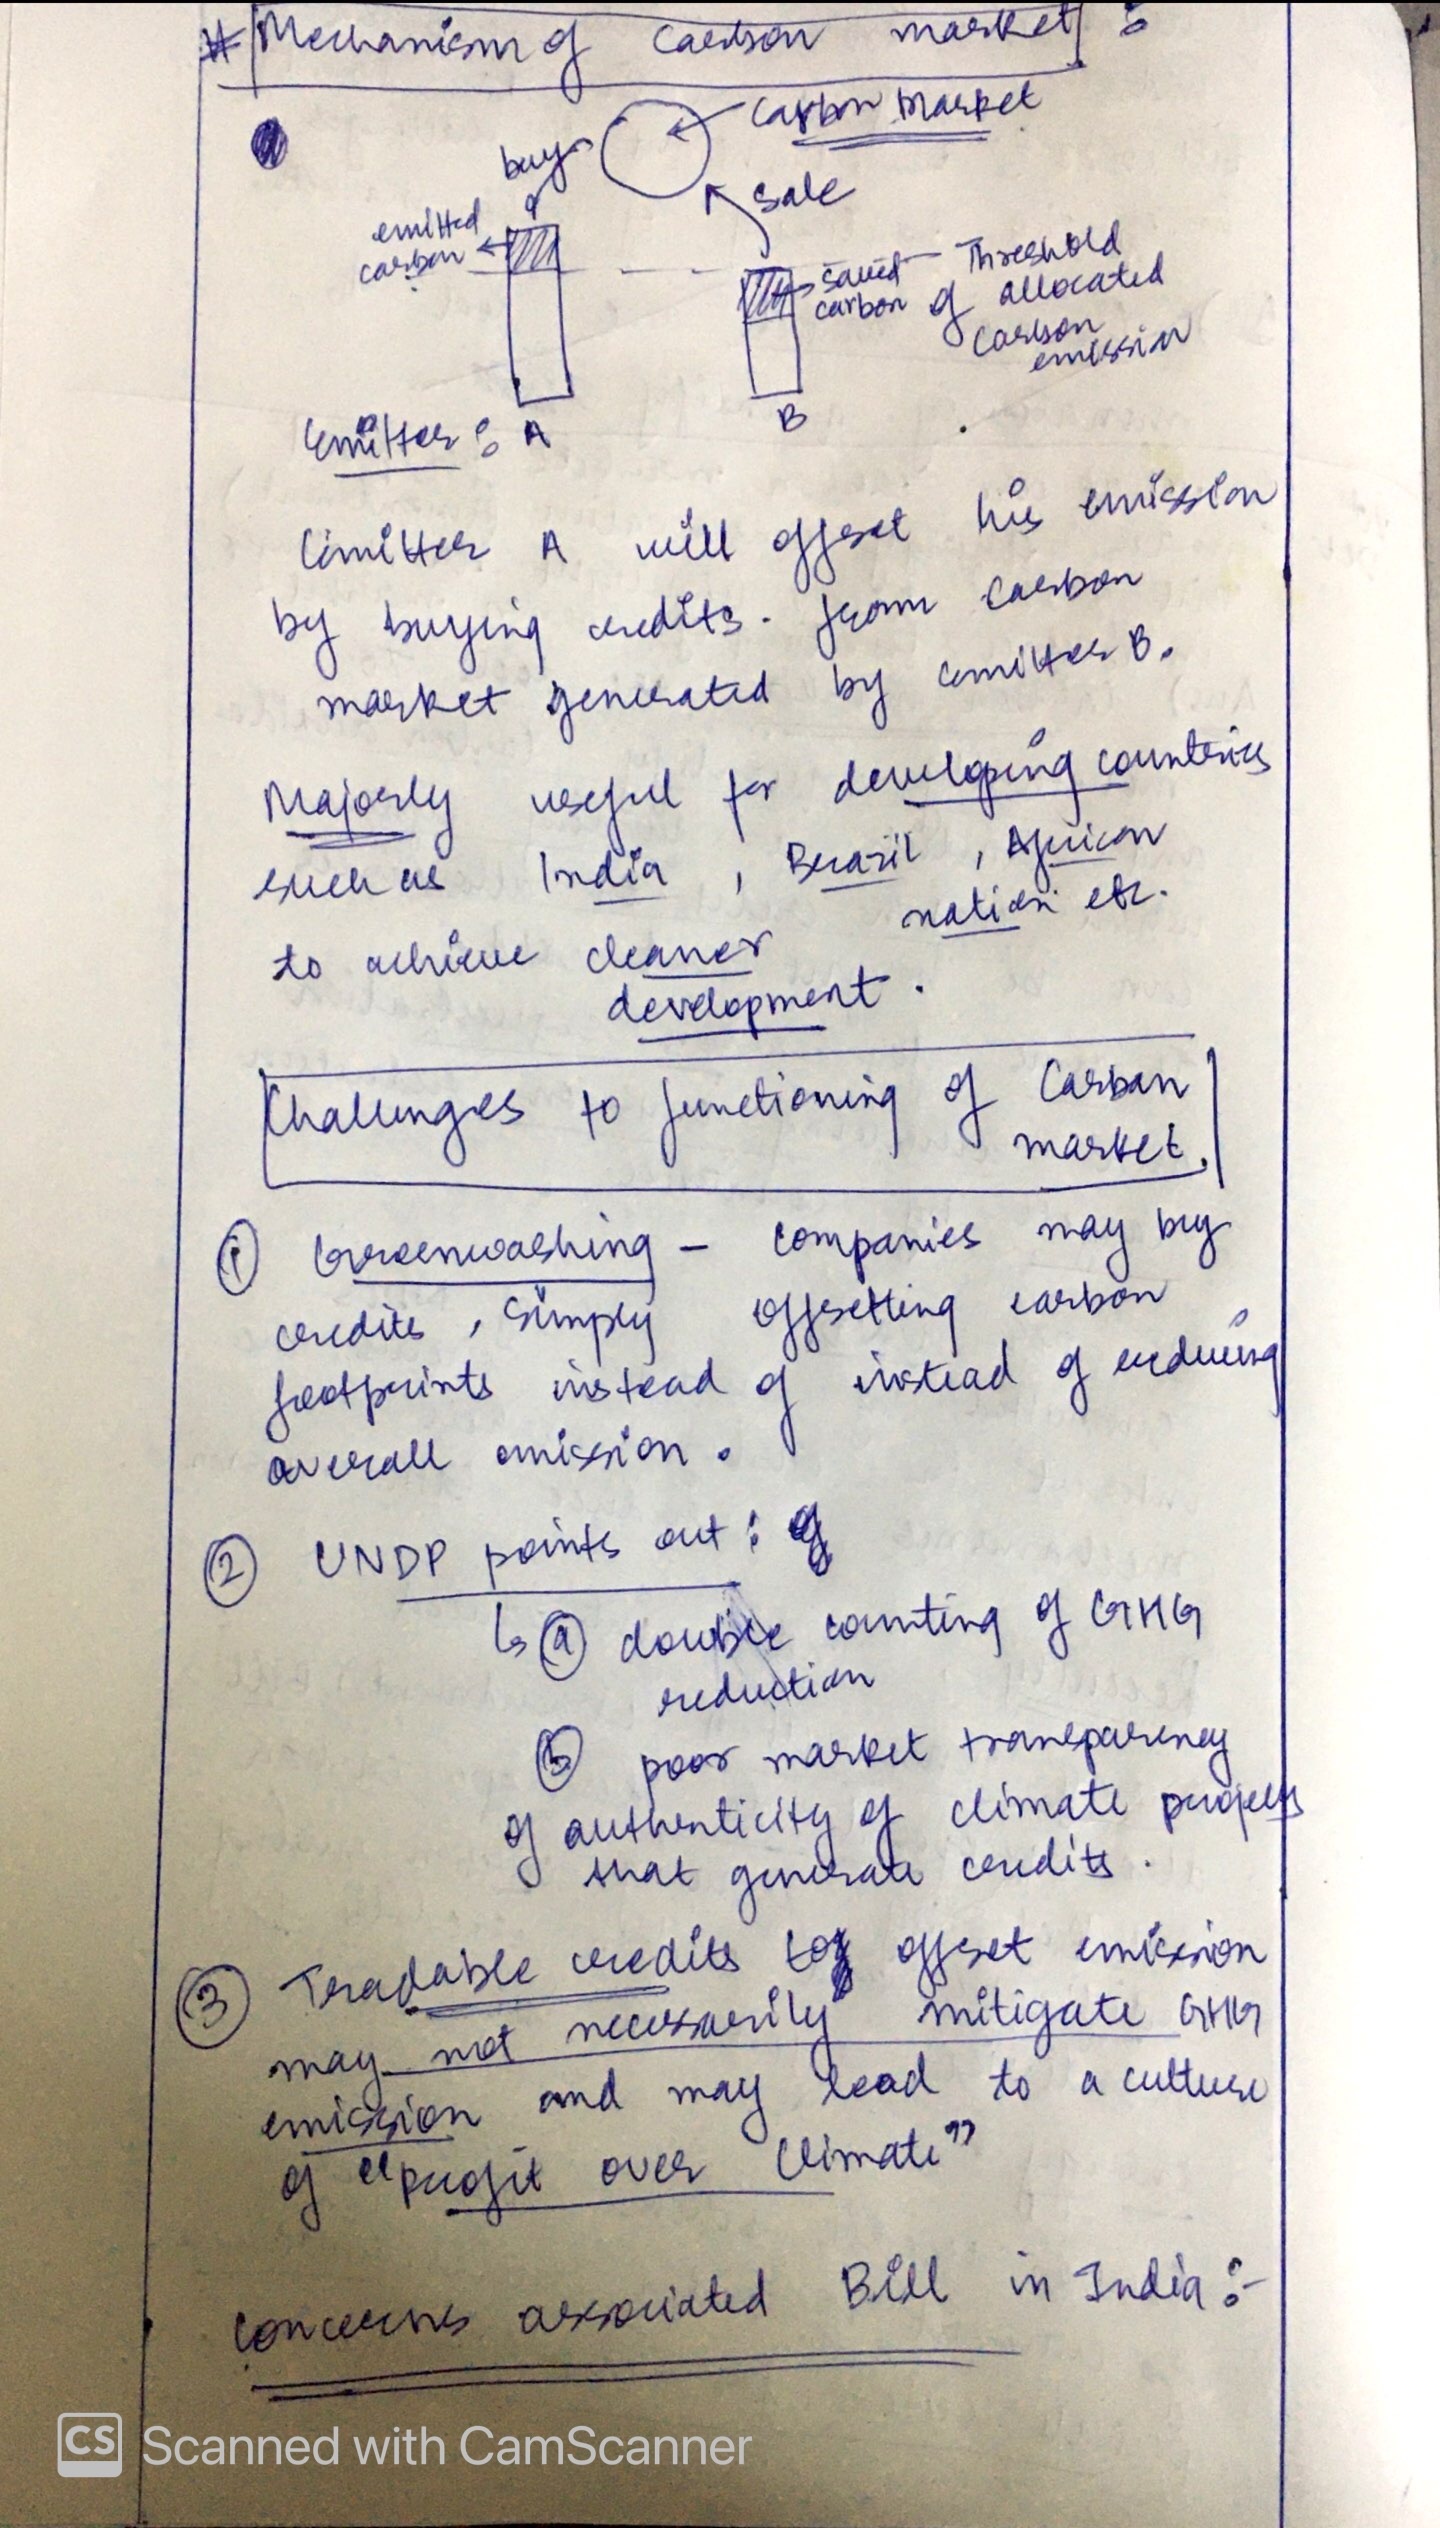 # Mechanism of Carbon market :
Carbon Market
buy
Sale
emitted
carbon
saved
carbon
Threshold
of allocated
Carbon
emission
Emitter : A
B
Emitter A will offset his emission
by buying credits. from Carbon
market generated by emitter B.
Majorly useful for developing countries
such as India , Brazil , African
nation etc.
to achieve cleaner
development .
Challenges to functioning of Carbon
market.
① Greenwashing - Companies may buy
credits , simply offsetting carbon
footprints instead of instead of reducing
overall emission .
② UNDP points out :
↳ ⓐ double counting of GHG
reduction
ⓑ poor market transparency
of authenticity of climate projects
that generate credits .
③ Tradable credits to offset emission
may not necessarily mitigate GHG
emission and may lead to a culture
of "profit over Climate"
Concerns associated Bill in India :-
CS Scanned with CamScanner